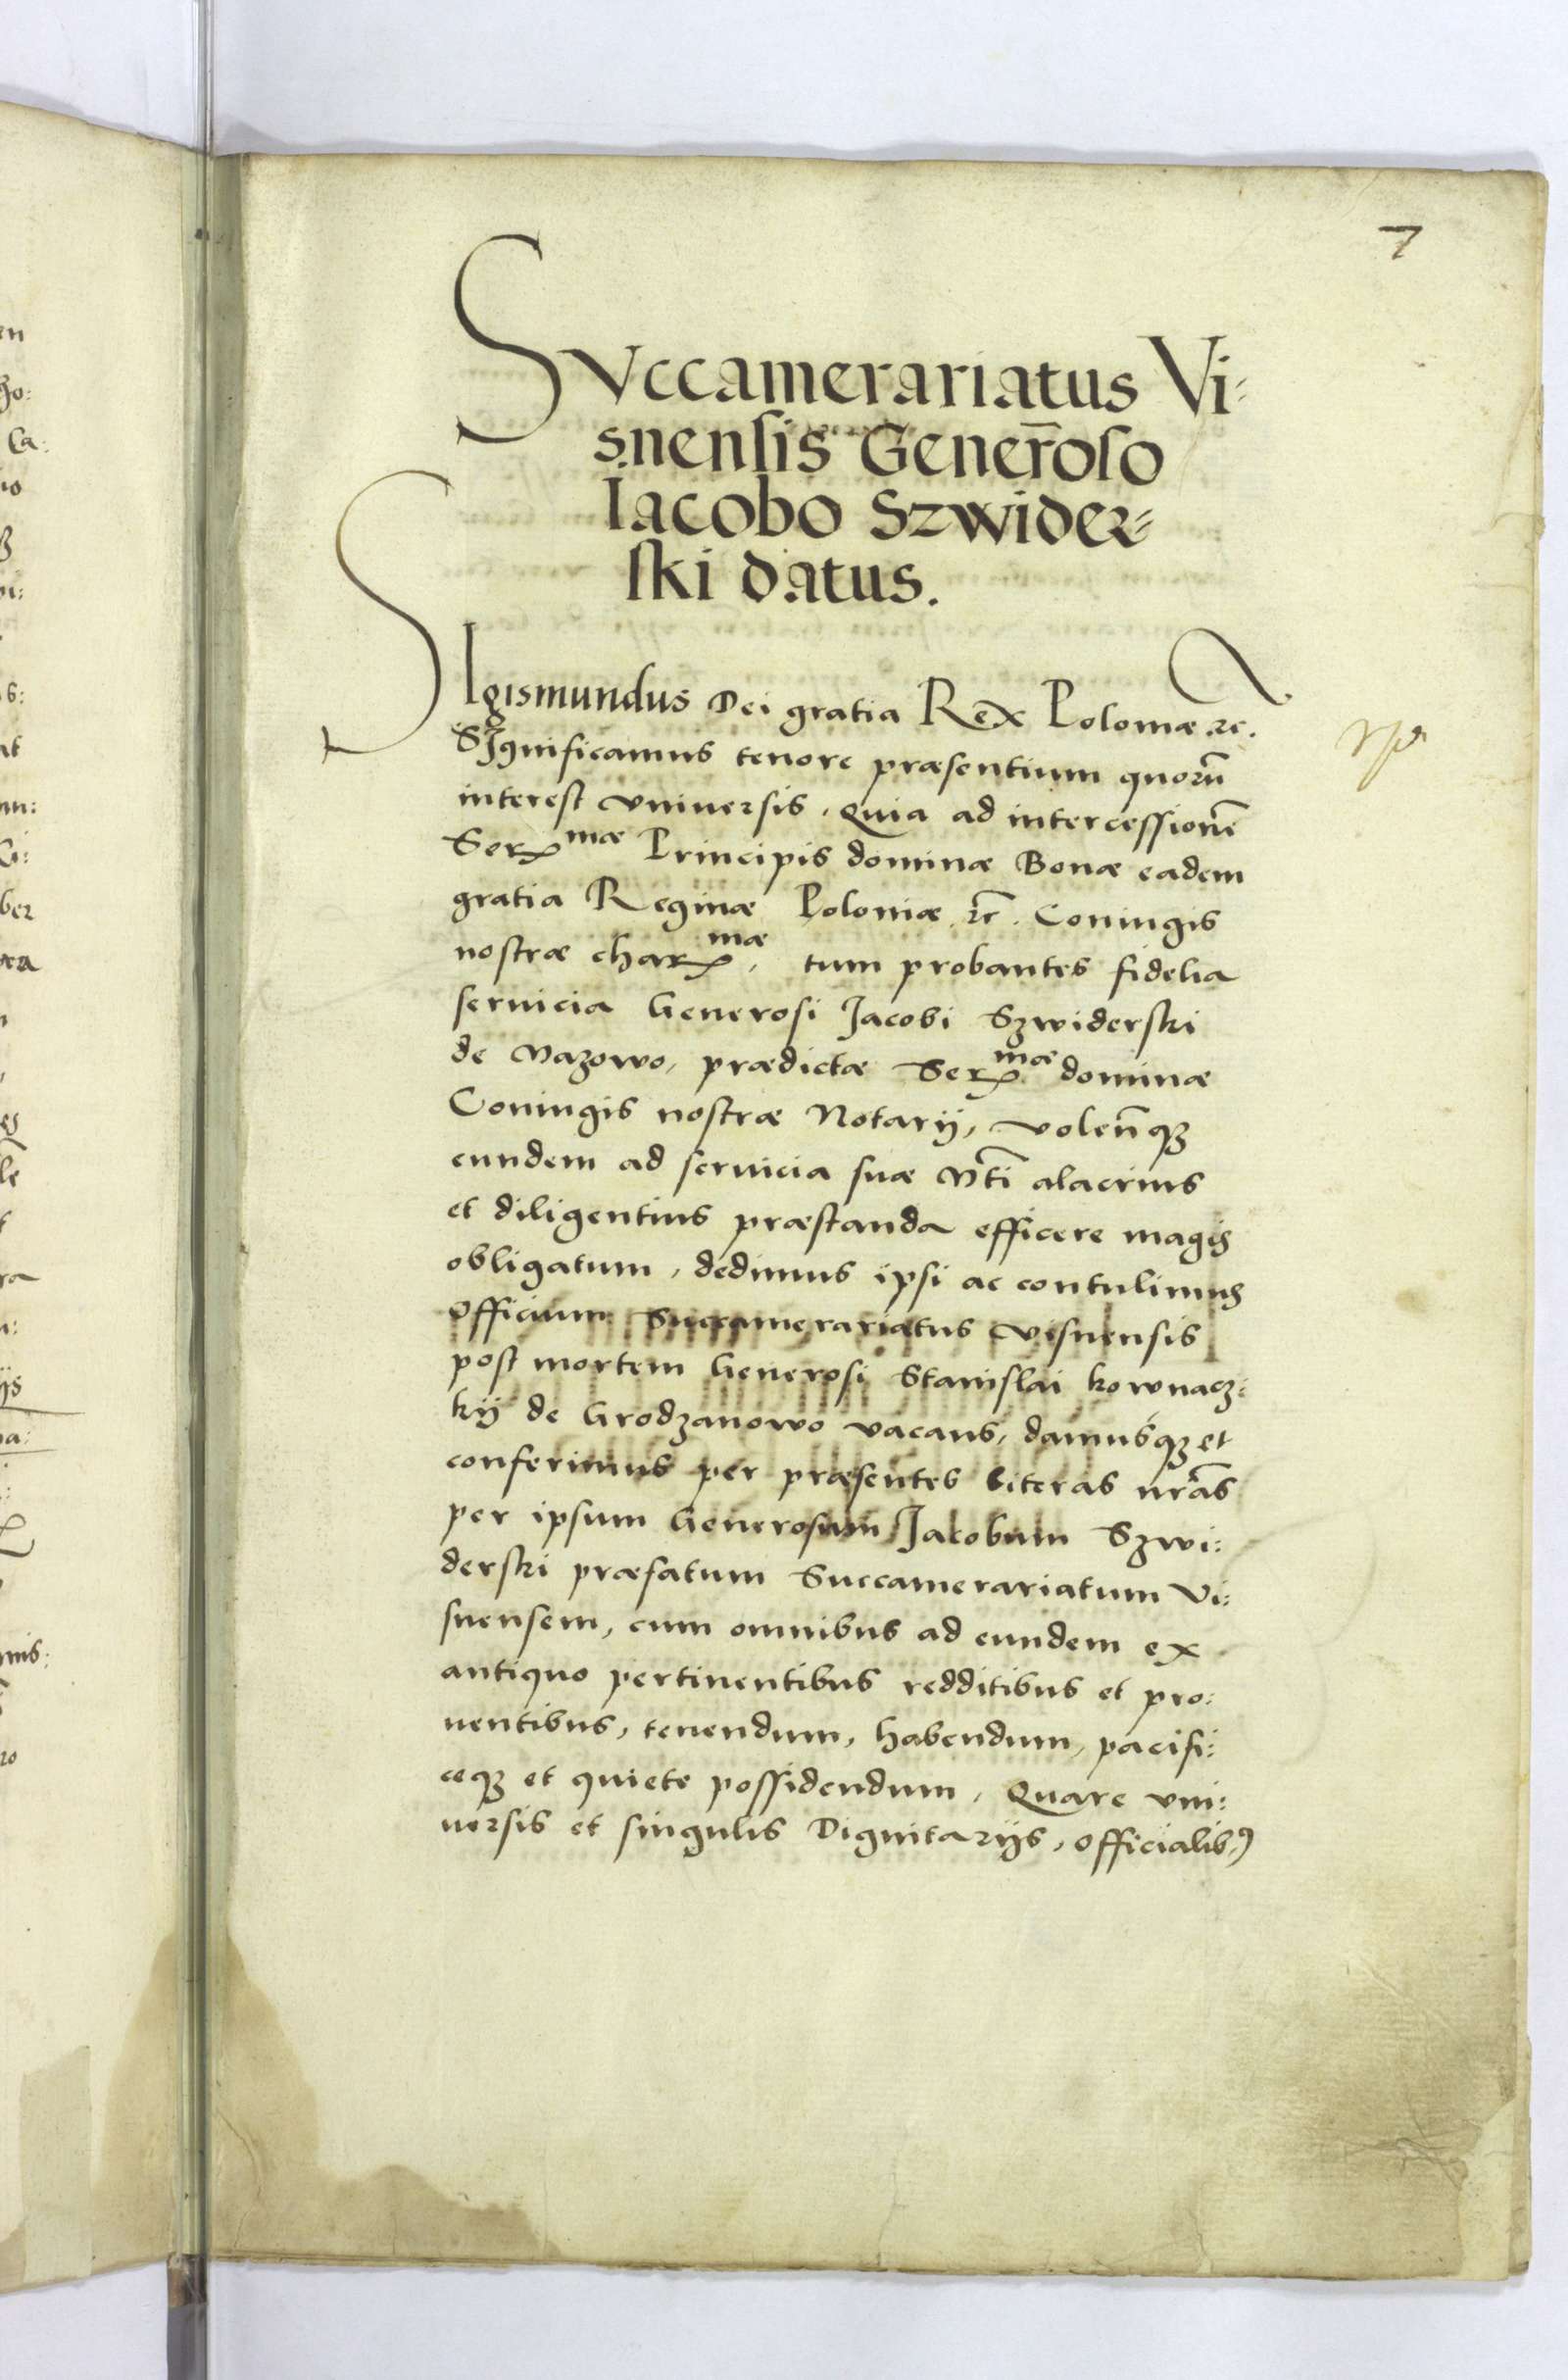 7
SVccamerariatus Vi-
snensis Generoso
Iacobo Szwider-
ski datus.
SIgismundus Dei gratia Rex Poloniæ .zc.
SIgnificamus tenore præsentium quorū
interest vniuersis. Quia ad intercessionē
Serᵐæ Principis dominæ Bonæ eadem
gratia Reginæ Poloniæ .zc. Coniugis
nostræ charᵐæ, tum probantes fidelia
seruicia Generosi Jacobi Szwiderski
de Mazowo, prædictæ Serᵐæ dominæ
Coniugis nostræ Notarij, volen̄tesqȝ
eundem ad seruicia suæ Mti alacrius
et diligentius præstanda efficere magis
obligatum, dedimus ipsi ac contulimus
officium Succamerariatus Visnensis
post mortem Generosi Stanislai kownacz:
kij de Grodzanowo vacans, damusqȝ et
conferimus per præsentes literas nrās
per ipsum Generosum Jacobum Szwi:
derski præfatum Succamerariatum Vi:
snensem, cum omnibus ad eundem ex
antiquo pertinentibus redditibus et pro:
uentibus, tenendum, habendum, pacifi:
ceqȝ et quiete possidendum, Quare vni:
uersis et singulis Dignitarijs, officialibꝰ